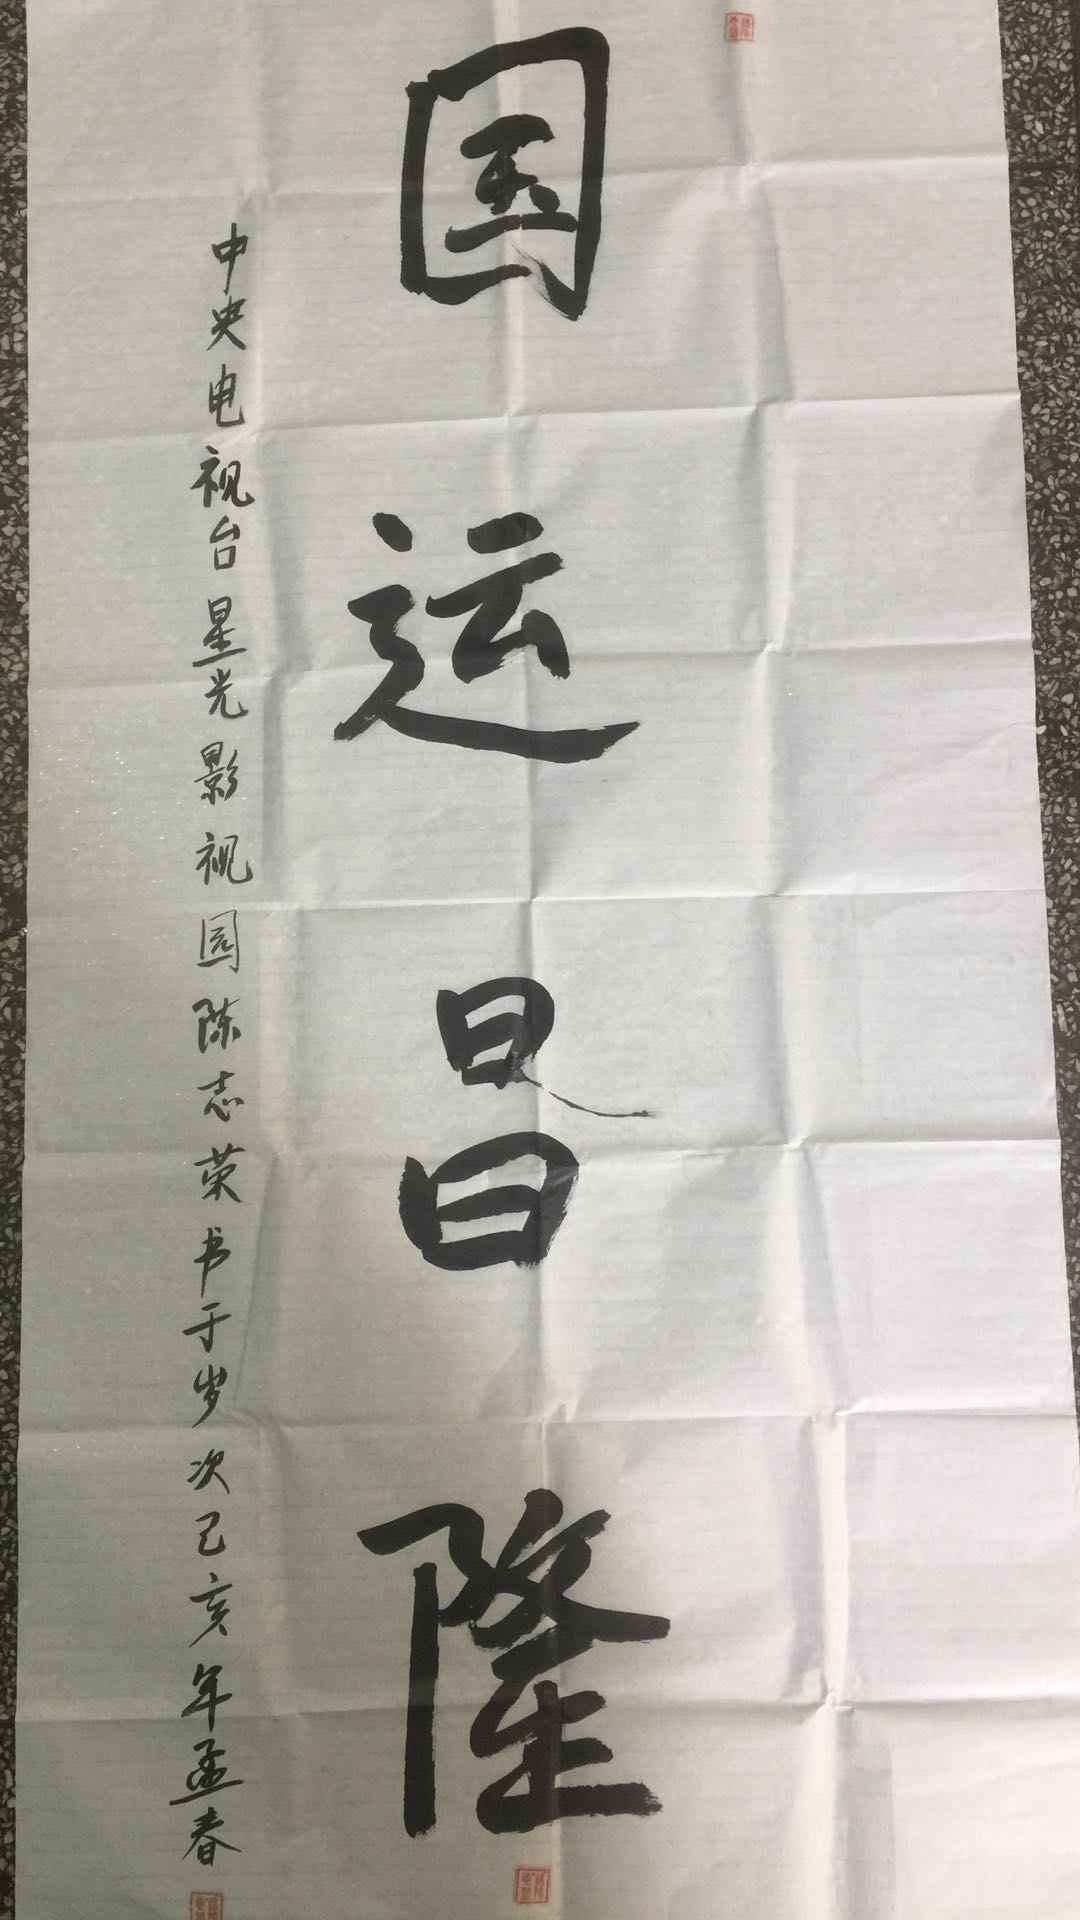 国运昌隆
中央电视台星光影视园陈志荣书于岁次己亥年孟春